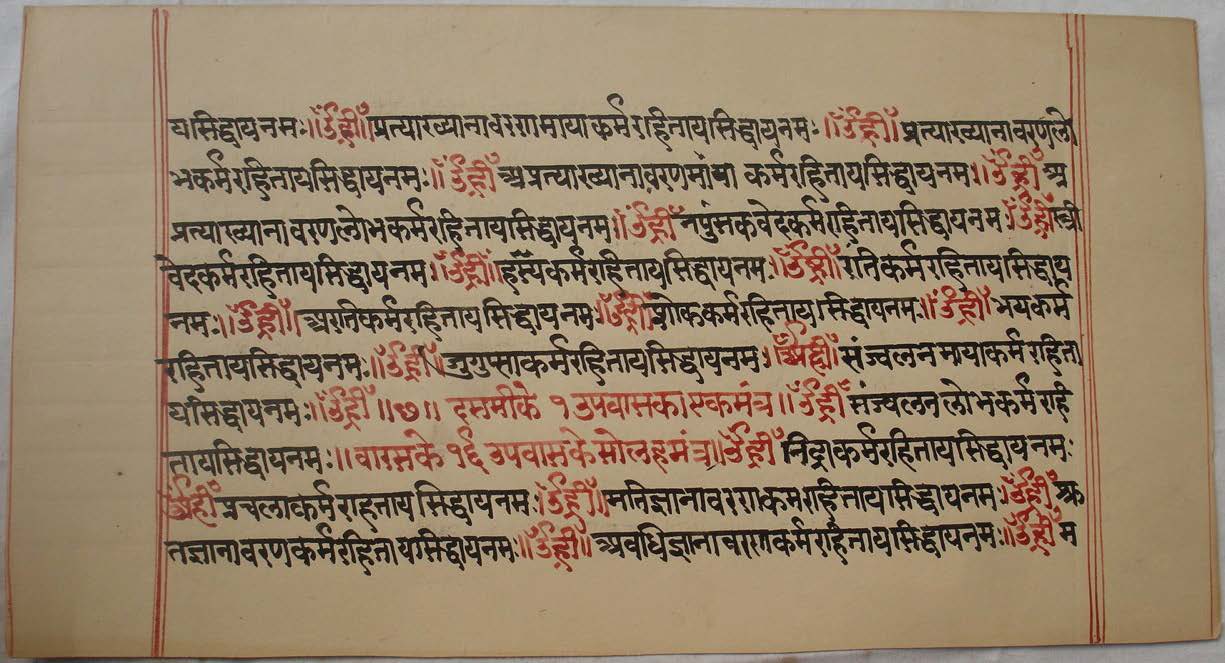 यसिद्धायनमः॥ॐह्रीँ॥प्रत्याख्यानावरणमायाकर्मरहितायसिद्धायनमः॥ॐह्रीँ॥प्रत्याख्यानावरणलो
भकर्मरहितायसिद्धायनमः॥ॐह्रीँअप्रत्याख्यानावरणमांया कर्मरहितायसिद्धायनमः॥ॐह्रीँअ
प्रत्याख्यानावरणलोभकर्मरहितायसिद्धायनमः॥ॐह्रीँनपुंसकवेदकर्मरहितायसिद्धायनमः॥ॐह्रीँस्त्री
वेदकर्मरहितायसिद्धायनमः॥ॐह्रीँ॥हास्यकर्मरहितायसिद्धायनमः॥ॐह्रीँ॥रतिकर्मरहितायसिद्धाय
नमः॥ॐह्रीँ॥अरतिकर्मरहितायसिद्धायनमः॥ॐह्रीँशोककर्मरहितायसिद्धायनमः॥ॐह्रीँभयकर्म
रहितायसिद्धायनमः॥ॐह्रीँ॥जुगुप्साकर्मरहितायसिद्धायनमः॥ॐह्रीँसंज्वलनमायाकर्मरहिता
यसिद्धायनमः॥ॐह्रीँ॥७॥ दसमीके १ उपवासका एकमंत्र॥ॐह्रीँसंज्वलनलोभकर्मरही
तायसिद्धायनमः॥वारसके १६ उपवासके सोलहमंत्र॥ॐह्रीँनिद्राकर्मरहितायसिद्धायनमः
ॐह्रीँप्रचलाकर्मरहितायसिद्धायनमः॥ॐह्रीँ॥मतिज्ञानावरणकर्मरहितायसिद्धायनमः॥ॐह्रीँश्रु
तज्ञानावरणकर्मरहितायसिद्धायनमः॥ॐह्रीँ॥अवधिज्ञानावरणकर्मरहितायसिद्धायनमः॥ॐह्रीँम